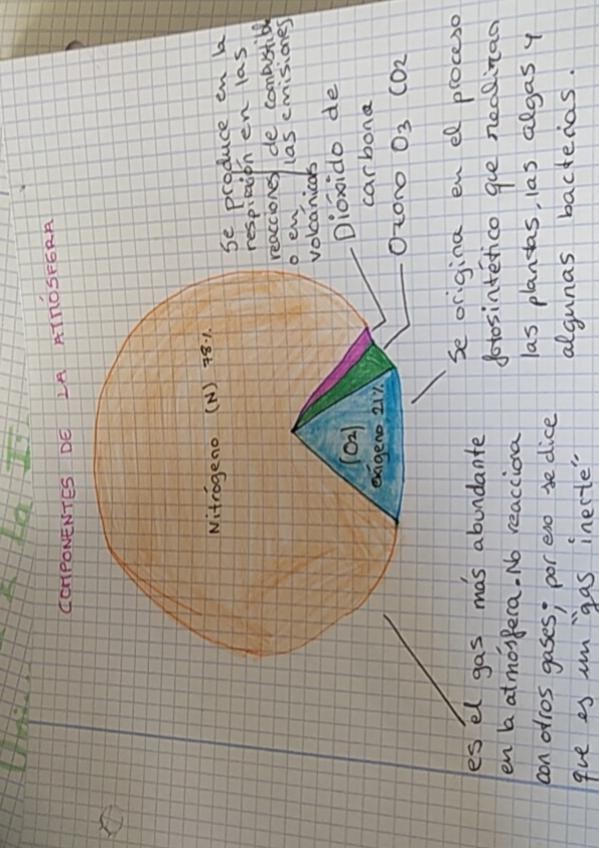 COMPONENTES DE LA ATMÓSFERA
Nitrógeno (N) 78%
(O2)
oxígeno 21%
Se produce en la
respiración en las
reacciones de combustible
o en las emisiones
volcánicas
Dióxido de
carbono
Ozono O3 CO2
Se origina en el proceso
fotosintético que realizan
las plantas, las algas y
algunas bacterias.
es el gas más abundante
en la atmósfera. No reacciona
con otros gases; por eso se dice
que es un "gas inerte"